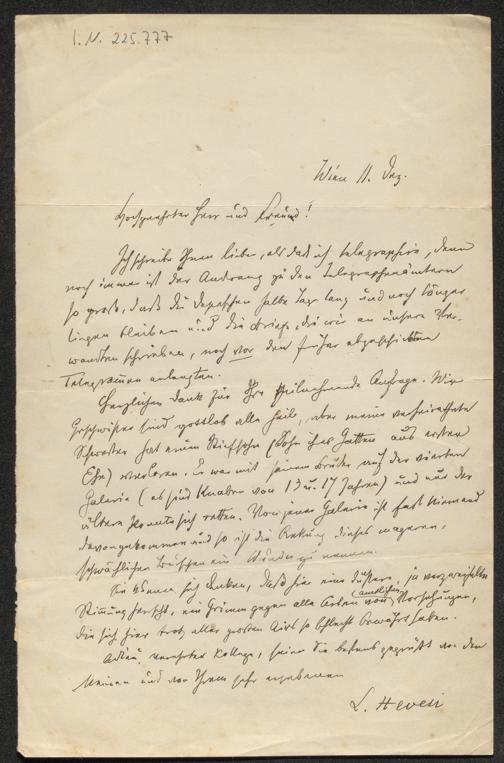 I. N. 225.777
Wien 11. Dez.
Hochgeehrter Herr und Freund!
Ich schreibe Ihnen lieber, als daß ich telegraphire, denn
noch immer ist der Andrang zu den Telegraphenämtern
so groß, daß die Depeschen halbe Tage lang und noch länger
liegen bleiben und die Briefe, die wir an unsere Ver-
wandten schrieben, noch vor den früher abgeschickten
Telegrammen anlangten.
Herzlichen Dank für Ihre theilnehmende Anfrage. Wir
Geschwister sind gottlob alle heil, aber meine verheirathete
Schwester hat einen Stiefsohn (Sohn ihres Gatten aus erster
Ehe) verloren. Er war mit seinem Bruder auf der vierten
Galerie (es sind Knaben von 13 u. 17 Jahren) und nur der
ältere konnte sich retten. Von jener Galerie ist fast niemand
davongekommen und so ist die Rettung dieses mageren,
schwächlichen Burschen ein Wunder zu nennen.
Sie können sich denken, daß hier eine düstere, ja verzweifelte
Stimmung herrscht, ein Grimm gegen alle Arten von (amtlichen) Vorsehungen,
die sich hier trotz alles großen so schlecht bewährt haben.
Adieu, verehrter Kollege, seien Sie bestens gegrüßt von den
Meinen und von Ihrem sehr ergebenen
L. Hevesi